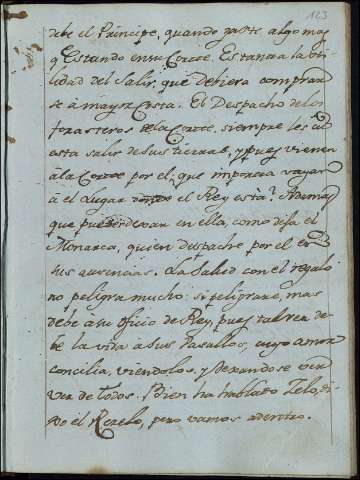 123
debe el Principe, quando gaste algo mas
q̃ Estando en su Corte. Es tanta la uti-
lidad del Salir, que debiera comprar
se à mayor Costa. El Despacho de los
forasteros de la Corte, siempre les cu
esta salir de sus tierras, y pues vienen
à la Corte por el, que importa vayan
à el Lugar donde el Rey està? Ademas
que puede dexar en ella, como dixa el
Monarca, quien despache por el en
sus ausencias. La Salud con el regalo
no peligra mucho: si peligrare, mas
debe à su oficio de Rey, pues tal vez de-
be la vida à sus Vasallos, cuyo amor
concilia, viendolos, y dexandose ver
ver de todos. Bien ha hablado Zelo, di-
xo el Rezelo, pero vamos adentro.